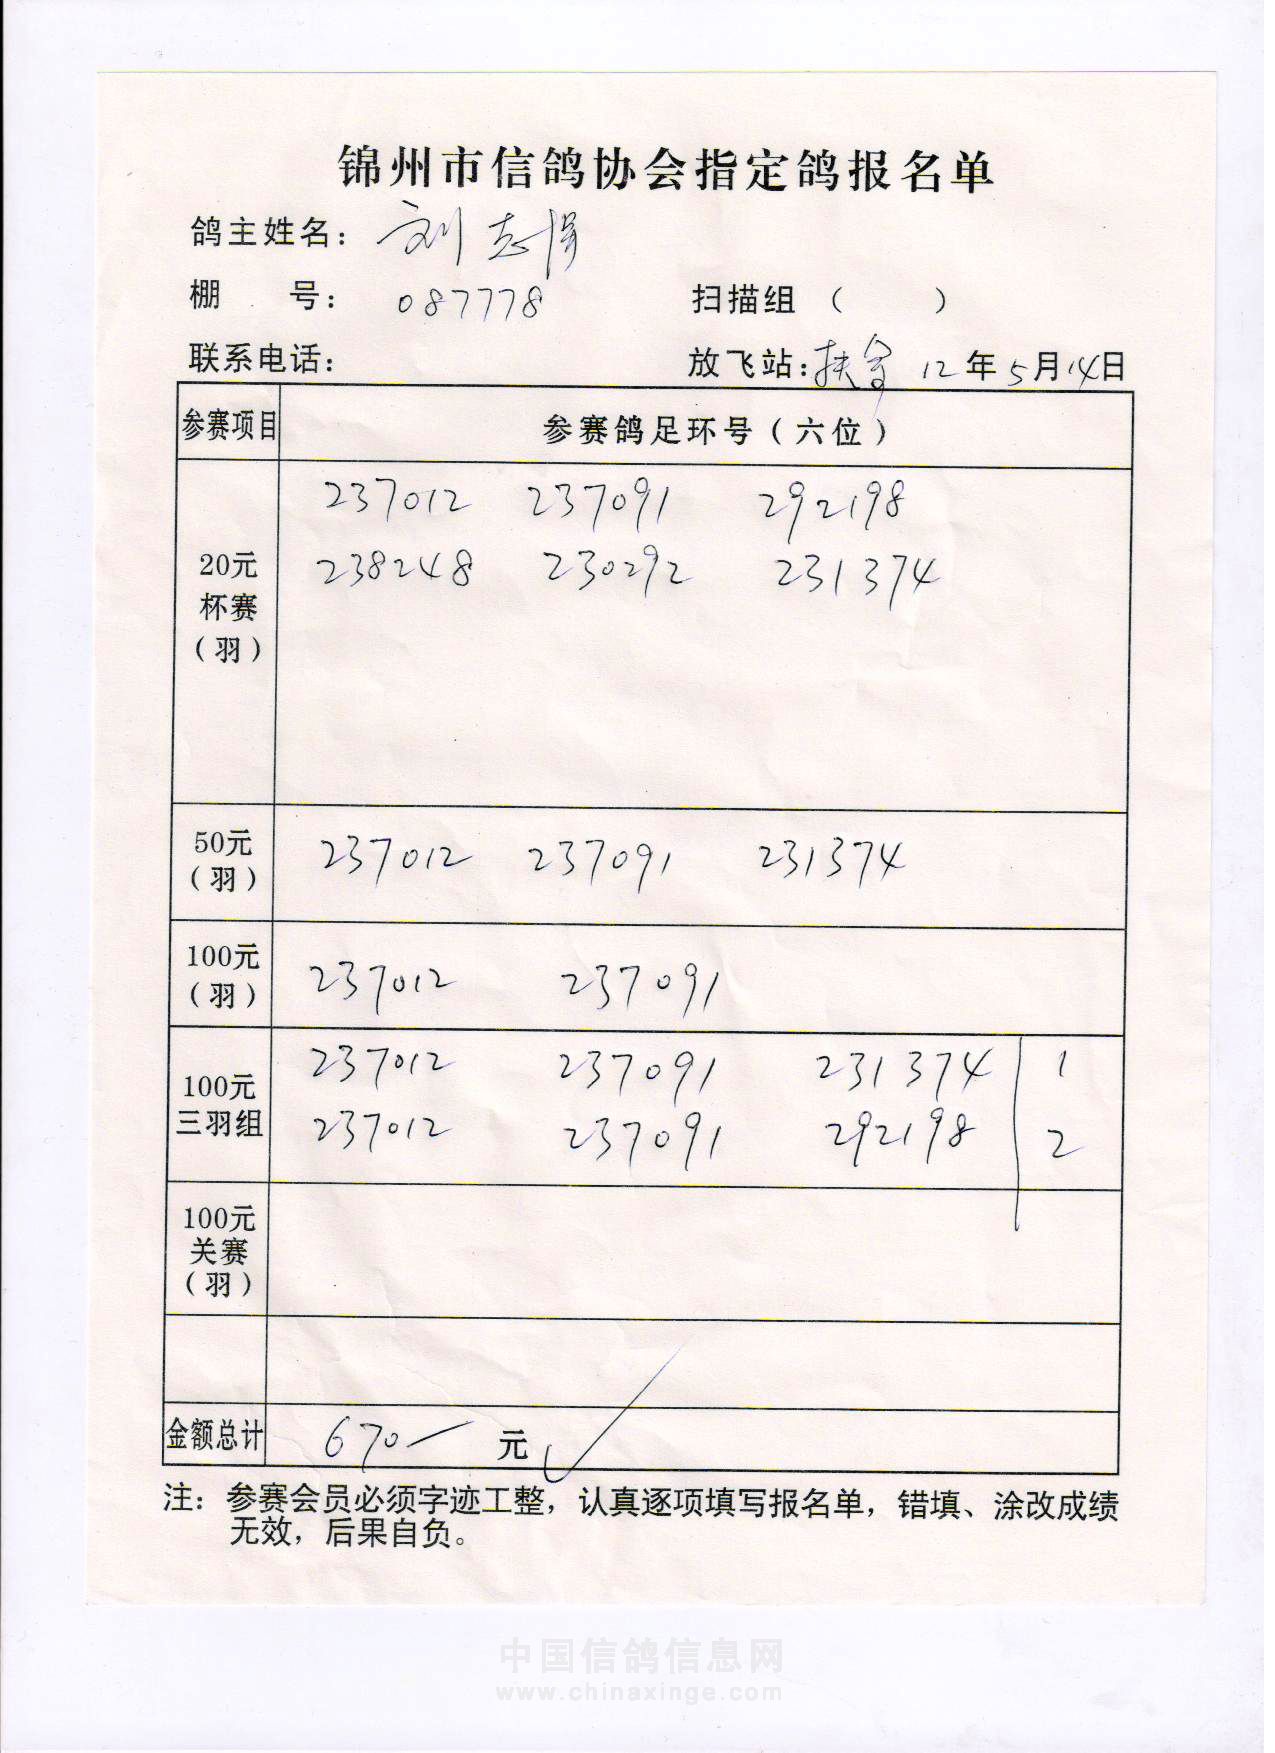 锦州市信鸽协会指定鸽报名单
鸽主姓名： 刘志
棚 号： 087778 扫描组（ ）
联系电话： 放飞站：扶余 12年5月14日
参赛项目 参赛鸽足环号（六位）
237012 237091 292198
20元
杯赛
（羽）
238248 230292 231374
50元
（羽）
237012 237091 231374
100元
（羽）
237012 237091
100元
三羽组
237012 237091 231374 1
237012 237091 292198 2
100元
关赛
（羽）
金额总计 670一 元
注：参赛会员必须字迹工整，认真逐项填写报名单，错填、涂改成绩
无效，后果自负。
中国信鸽信息网
www.chinaxinge.com